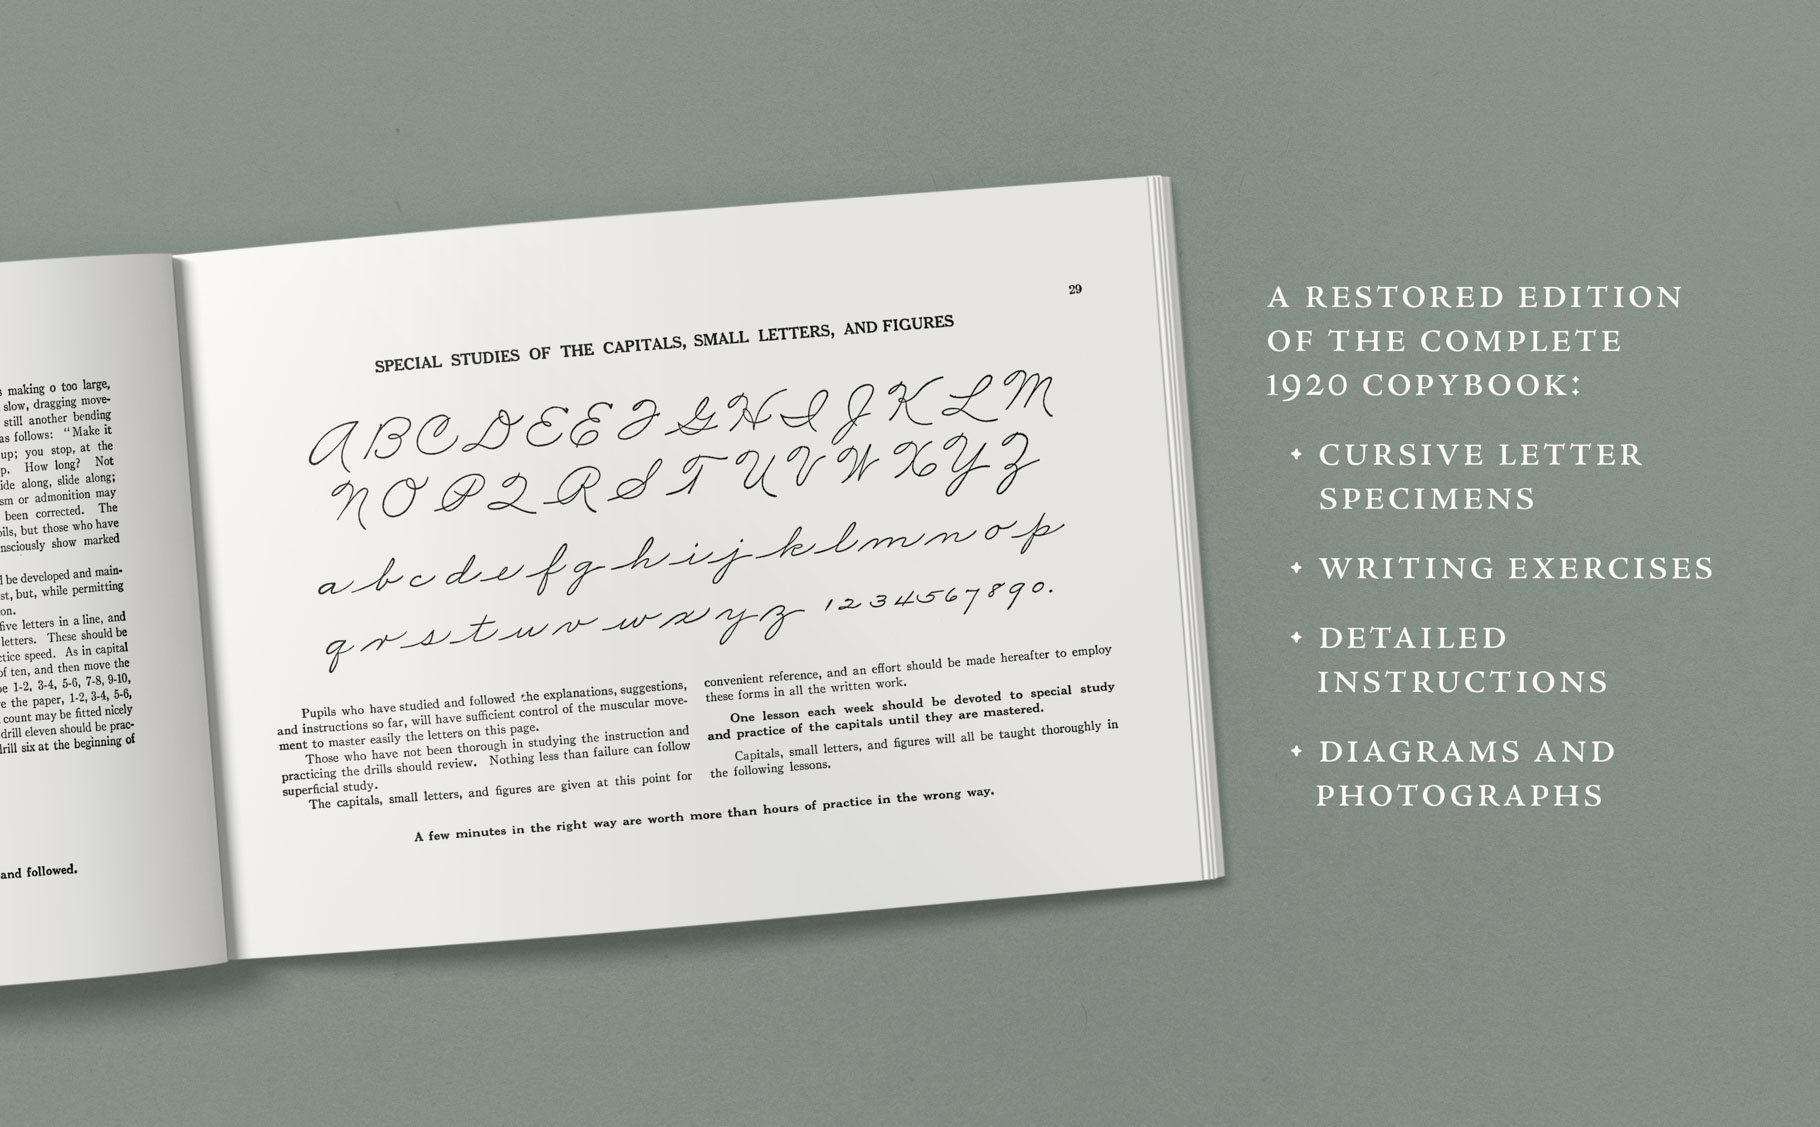 s making o too large,
slow, dragging move-
still another bending
as follows: "Make it
up; you stop, at the
p. How long? Not
ide along, slide along;
sm or admonition may
been corrected. The
oils, but those who have
nsciously show marked
l be developed and main-
st, but, while permitting
on.
five letters in a line, and
letters. These should be
ctice speed. As in capital
of ten, and then move the
be 1-2, 3-4, 5-6, 7-8, 9-10,
e the paper, 1-2, 3-4, 5-6,
count may be fitted nicely
drill eleven should be prac-
drill six at the beginning of
and followed.
29
SPECIAL STUDIES OF THE CAPITALS, SMALL LETTERS, AND FIGURES
A B C D E E F G H I J K L M
N O P Q R S T U V W X Y Z
a b c d e f g h i j k l m n o p
q r s t u v w x y z 1 2 3 4 5 6 7 8 9 0.
Pupils who have studied and followed the explanations, suggestions,
and instructions so far, will have sufficient control of the muscular move-
ment to master easily the letters on this page.
Those who have not been thorough in studying the instruction and
practicing the drills should review. Nothing less than failure can follow
superficial study.
The capitals, small letters, and figures are given at this point for
convenient reference, and an effort should be made hereafter to employ
these forms in all the written work.
One lesson each week should be devoted to special study
and practice of the capitals until they are mastered.
Capitals, small letters, and figures will all be taught thoroughly in
the following lessons.
A few minutes in the right way are worth more than hours of practice in the wrong way.
A RESTORED EDITION
OF THE COMPLETE
1920 COPYBOOK:
CURSIVE LETTER
SPECIMENS
WRITING EXERCISES
DETAILED
INSTRUCTIONS
DIAGRAMS AND
PHOTOGRAPHS